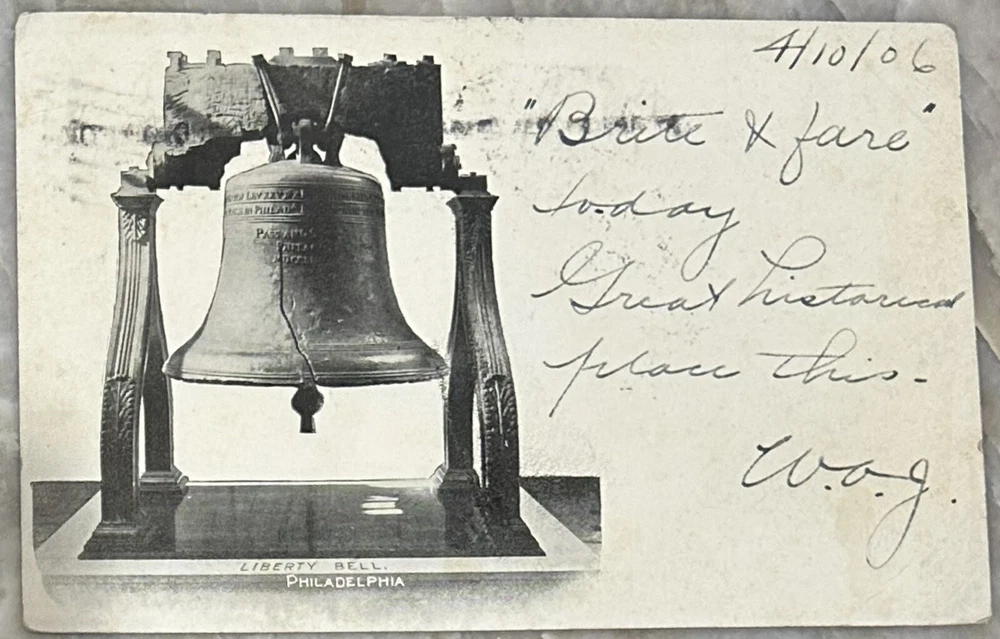 4/10/06
"Brite & fare"
to-day
Great historical
place this-
W.O.J.
PASS AND
LIBERTY BELL.
PHILADELPHIA